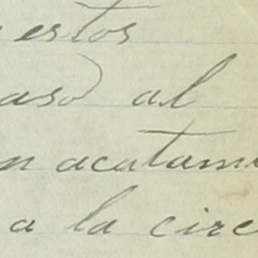 estos
aso al
n acatami
a la circ